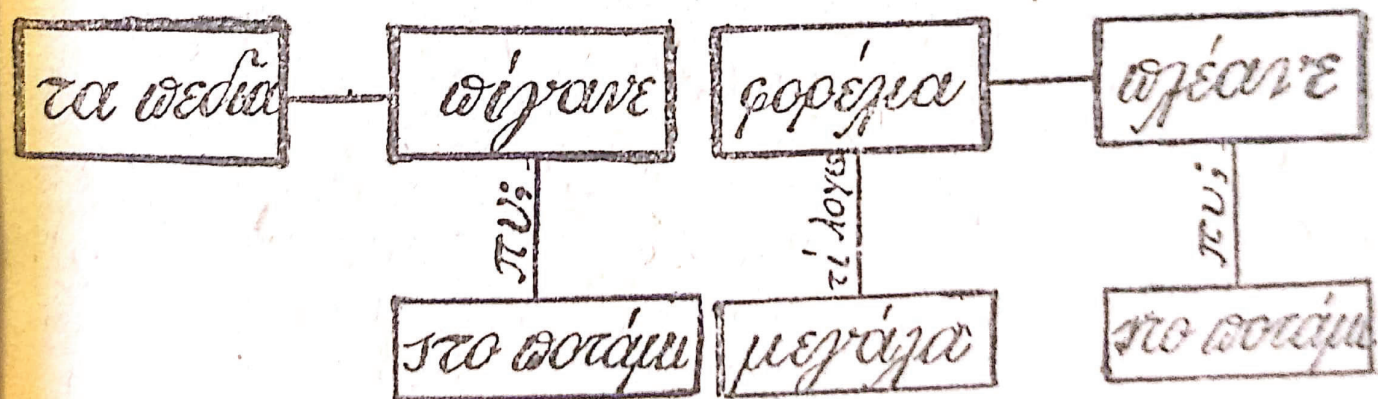 τα πεδῖα πίγανε φορέλια πλέανε
πυ; τί λογω πυ;
στο ποτάμι μεγάλα στο ποτάμι